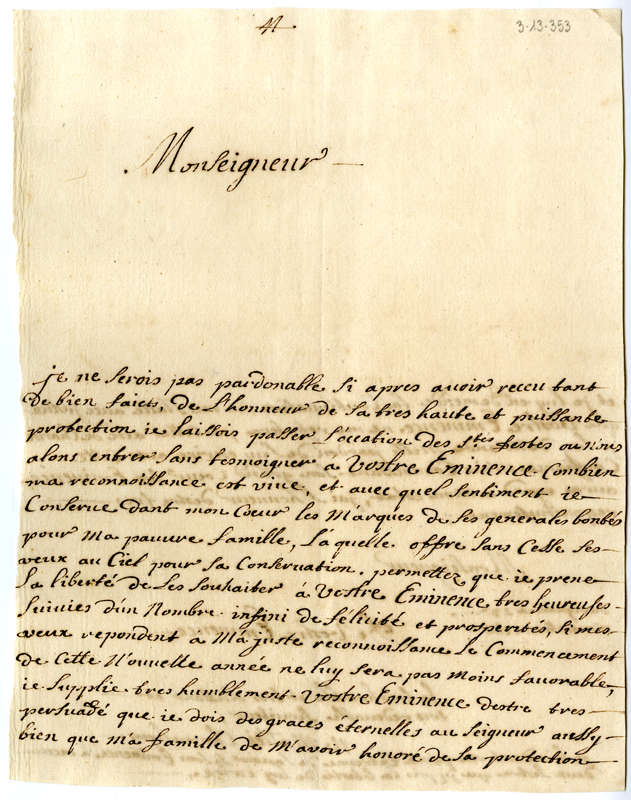 41
3-13-353
Monseigneur
je ne serois pas pardonable si apres auoir receu tant
de bien faicts, de L'honneur de sa tres haute et puissante
protection ie laissois passer L'occation des Stes festes ou nous
alons entrer sans tesmoigner a Vostre Eminence. Combien
ma reconnoissance est viue, et avec quel sentiment ie
Conserue dant mon Coeur les Marques de ses generales bontés
pour Ma pauure famille, La quelle offre sans Cesse ses
veux au Ciel pour sa Conservation. permettez que ie prene
La liberté de Les souhaiter à Vostre Eminence tres heureuses
suivies d'un Nombre infini de félicité et prosperités, si mes
veux repondent à Ma juste reconnoissance Le Commencement
de Cette Nouvelle année ne luy sera pas moins favorable,
ie supplie tres humblement Vostre Eminence destre tres
persuadé que ie dois des graces éternelles au Seigneur aussy
bien que Ma famille de M'avoir honoré de sa protection